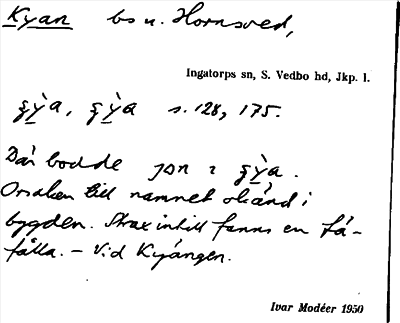 Kyan bs u. Hornsved,
Ingatorps sn, S. Vedbo hd, Jkp. l.
s. 128, 175.
Där bodde jon i
Orsaken till namnet okänd i
bygden. Strax intill fanns en få-
fålla. – Vid Kyängen.
Ivar Modéer 1950